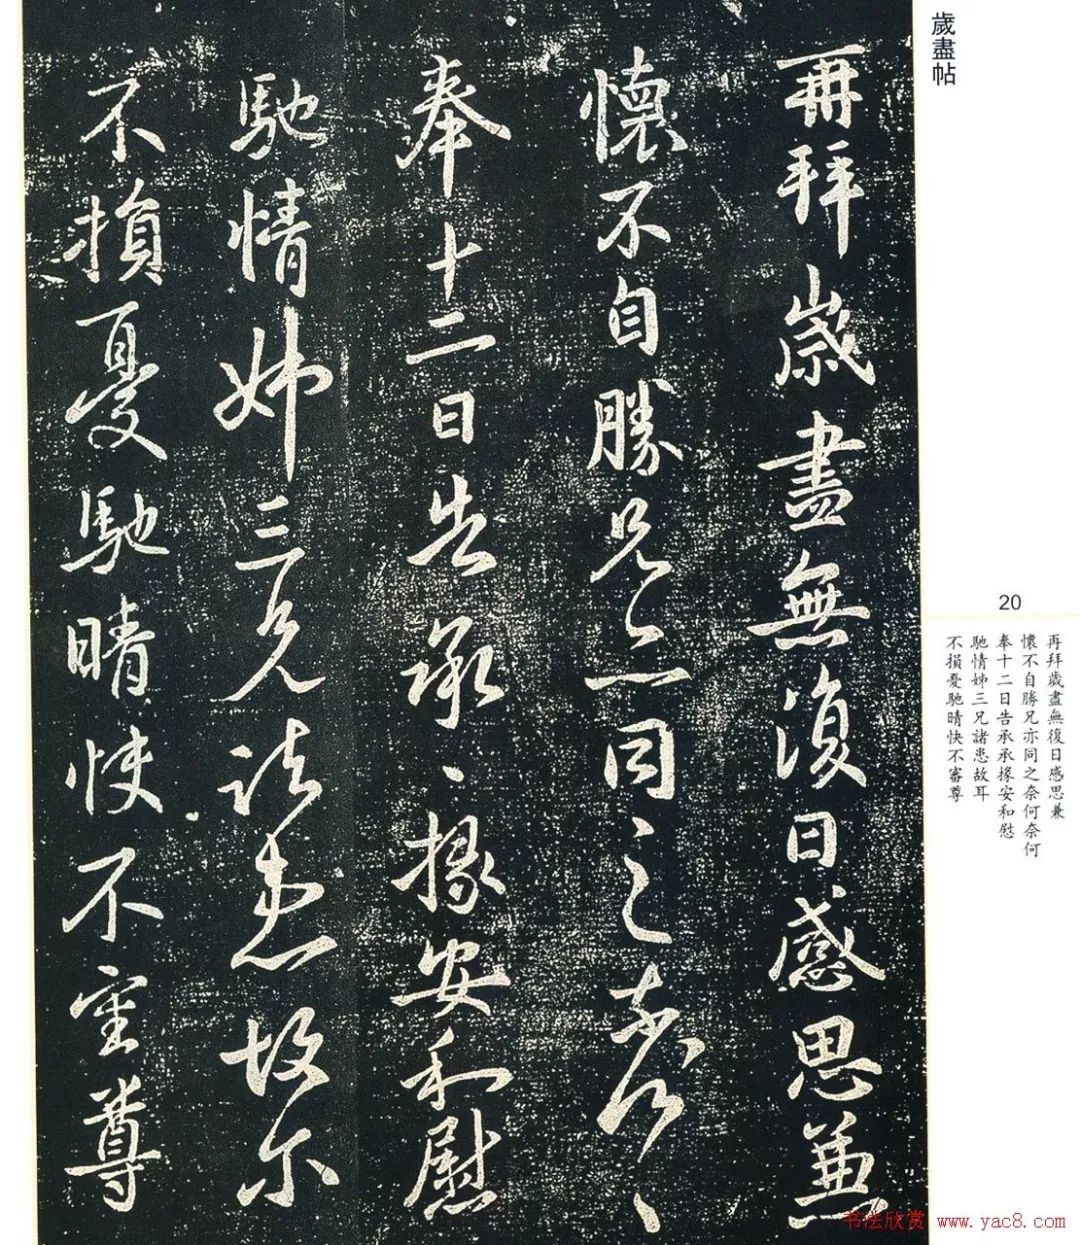 歲盡帖
再拜歲盡無復日感思兼
懷不自勝兄亦同之奈何〻〻
奉十二日告承〻掾安和慰
馳情姊三兄諸患故尔
不損憂馳晴快不審尊
20
再拜歲盡無復日感思兼
懷不自勝兄亦同之奈何奈何
奉十二日告承承掾安和慰
馳情姊三兄諸患故耳
不損憂馳晴快不審尊
书法欣赏 www.yac8.com